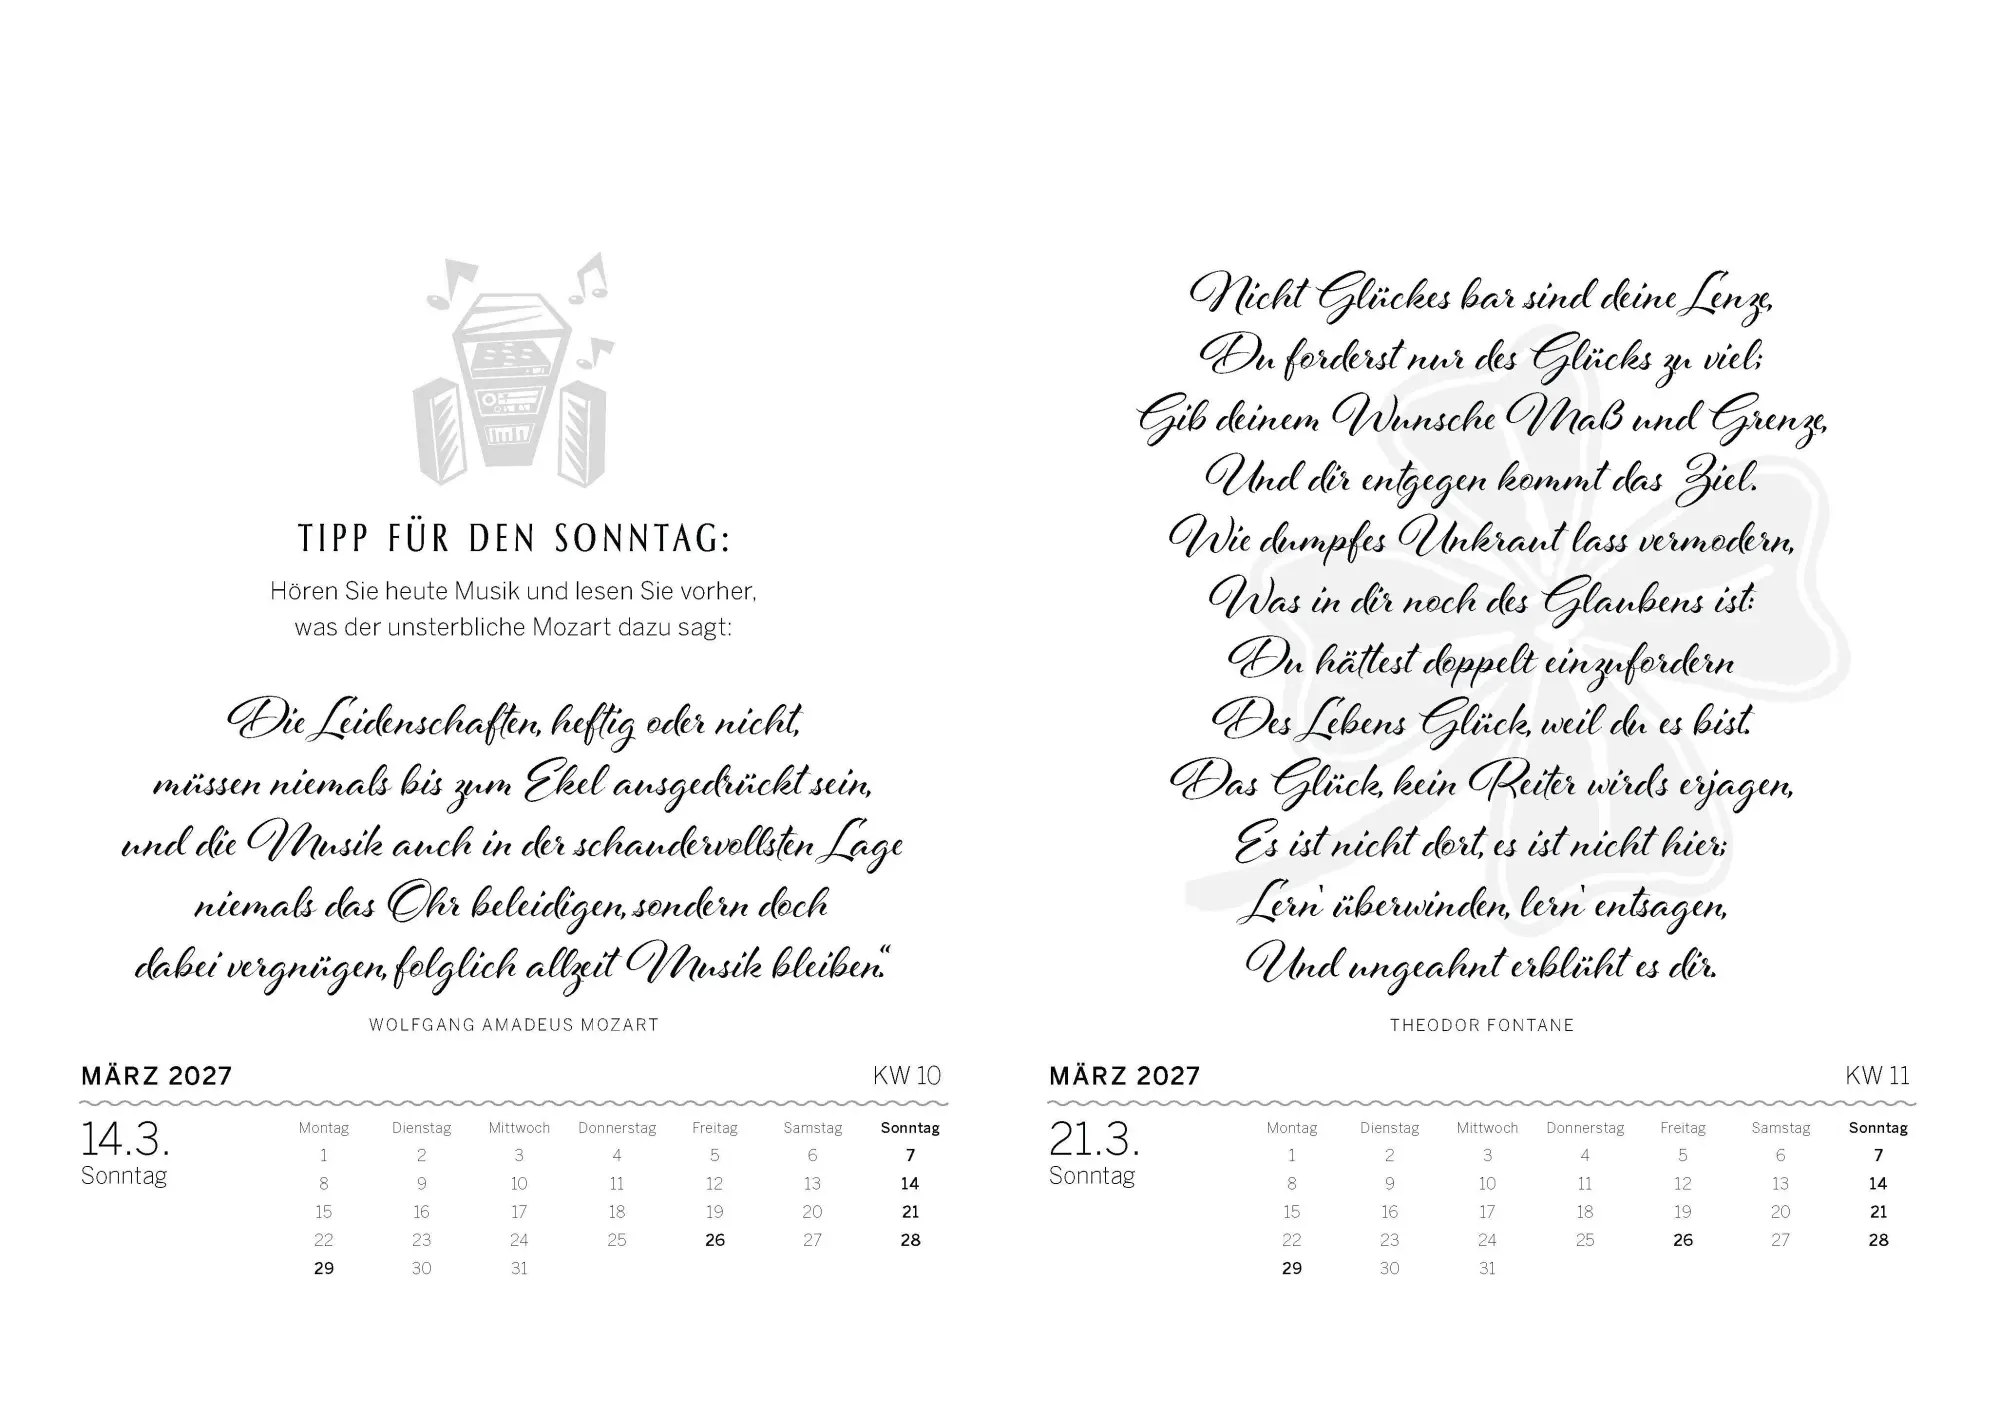 TIPP FÜR DEN SONNTAG:
Hören Sie heute Musik und lesen Sie vorher,
was der unsterbliche Mozart dazu sagt:
Die Leidenschaften, heftig oder nicht,
müssen niemals bis zum Ekel ausgedrückt sein,
und die Musik auch in der schaudervollsten Lage
niemals das Ohr beleidigen, sondern doch
dabei vergnügen, folglich allzeit Musik bleiben.“
WOLFGANG AMADEUS MOZART
MÄRZ 2027 KW 10
14.3.
Sonntag
Montag Dienstag Mittwoch Donnerstag Freitag Samstag Sonntag
1 2 3 4 5 6 7
8 9 10 11 12 13 14
15 16 17 18 19 20 21
22 23 24 25 26 27 28
29 30 31
Nicht Glückes bar sind deine Lenze,
Du forderst nur des Glücks zu viel;
Gib deinem Wunsche Maß und Grenze,
Und dir entgegen kommt das Ziel.
Wie dumpfes Unkraut lass vermodern,
Was in dir noch des Glaubens ist:
Du hättest doppelt einzufordern
Des Lebens Glück, weil du es bist.
Das Glück, kein Reiter wirds erjagen,
Es ist nicht dort, es ist nicht hier;
Lern` überwinden, lern` entsagen,
Und ungeahnt erblüht es dir.
THEODOR FONTANE
MÄRZ 2027 KW 11
21.3.
Sonntag
Montag Dienstag Mittwoch Donnerstag Freitag Samstag Sonntag
1 2 3 4 5 6 7
8 9 10 11 12 13 14
15 16 17 18 19 20 21
22 23 24 25 26 27 28
29 30 31